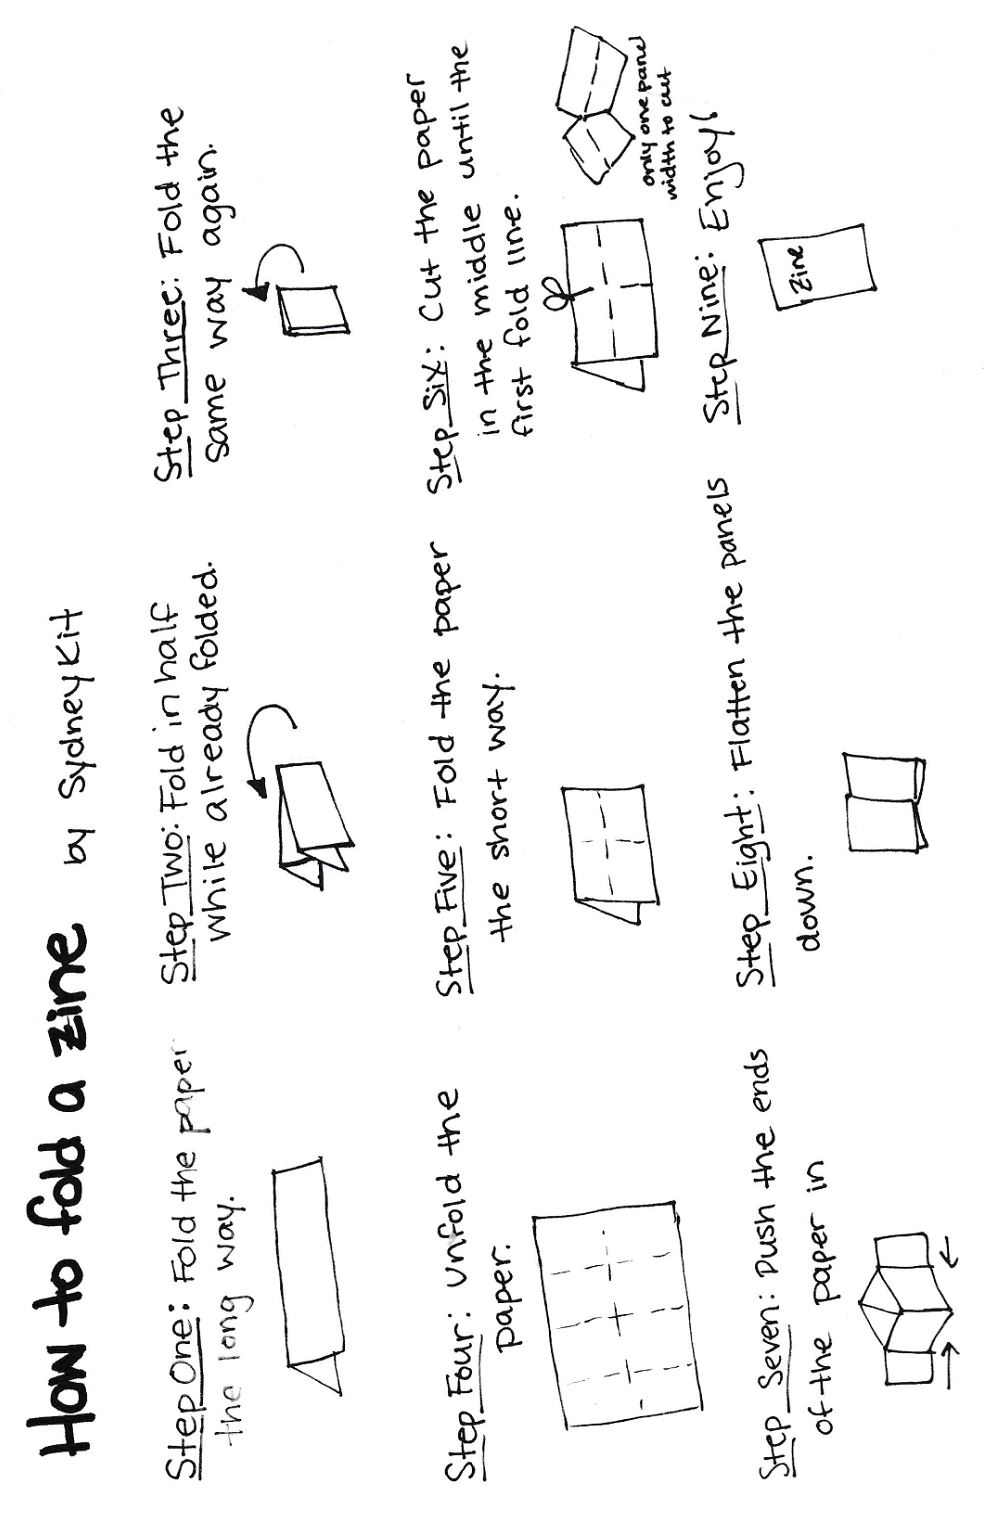 How to fold a zine by Sydney Kit
Step One: Fold the paper
the long way.
Step Two: Fold in half
while already folded.
Step Three: Fold the
same way again.
Step Four: Unfold the
paper.
Step Five: Fold the paper
the short way.
Step Six: Cut the paper
in the middle until the
first fold line.
only one panel
width to cut
Step Seven: Push the ends
of the paper in
Step Eight: Flatten the panels
down.
Step Nine: Enjoy!
Zine